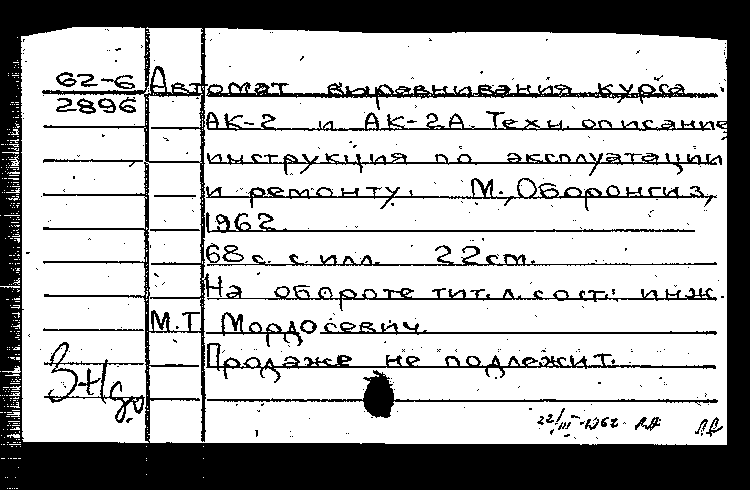 62-6 Автомат выравнивания курса
2896
АК-2 и АК-2А. Техн. описание
инструкция по эксплуатации
и ремонту. М., Оборонгиз,
1962.
68 с. с илл. 22 см.
На обороте тит. л. сост.: инж.
М.Т. Мордосевич.
Продаже не подлежит.
22/III-1962